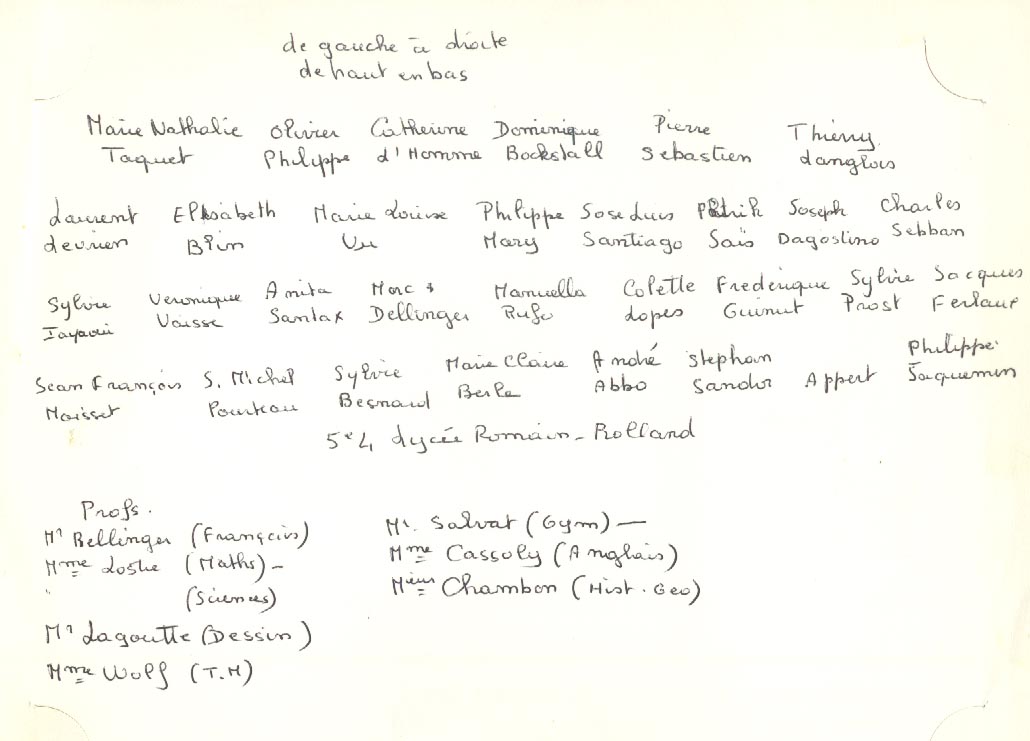 de gauche à droite
de haut en bas
Marie Nathalie Olivier Catherine Dominique Pierre Thierry
Taquet Philippe d'Homme Bockstall Sebastien Langlois
Laurent Elisabeth Marie Louise Philippe Jose Luis Patrik Joseph Charles
Levrien Blin Vu Mary Santiago Saïs Dagostino Sebban
Sylvie Veronique Anita Marc Manuella Colette Frederique Sylvie Jacques
Vaisse Santax Dellinger Rufo Lopes Guinut Prost
Jean François J. Michel Sylvie Marie Claire André Stephan Philippe
Moisset Besnard Berle Abbo Sandor Appert Jaquemin
5e4 Lycée Romain-Rolland
Profs.
Mr Bellinger (Français)
Mme (Maths) –
(Sciences)
Mr Lagoutte (Dessin)
Mme Wolf (T.M)
Mr. Salvat (Gym) —
Mme Cassoly (Anglais)
Chambon (Hist. Geo)